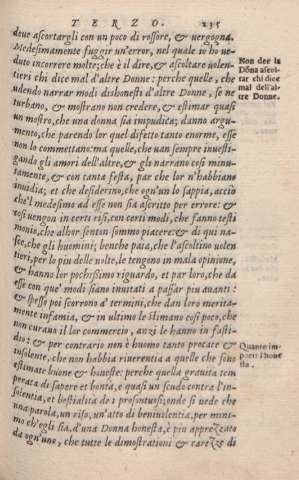 TERZO. 235
deue ascortargli con un poco di rossore, & vergogna.
Medesimamente fuggir un'error, nel quale io ho ve-
duto incorrere molte; che è il dire, & ascoltare volen-
tieri chi dice mal d'altre Donne: perche quelle, che
udendo narrar modi dishonesti d'altre Donne, se ne
turbano, & mostrano non credere, & estimar quasi
un mostro, che una donna sia impudica; danno argu-
mento, che parendo lor quel difetto tanto enorme, esse
non lo commettano: ma quelle, che uan sempre inuesti-
gando gli amori dell'altre, & gli narrano così minu-
tamente, & con tanta festa, par che lor n'habbiano
inuidia; et che desiderino, che ogn'un lo sappia, acciò
che'l medesimo ad esse non sia ascritto per errore: &
così uengon in certi risi, con certi modi, che fanno testi
monio, che alhor senton sommo piacere: & di qui na-
sce, che gli huomini; benche paia, che l'ascoltino volen
tieri, per lo piu delle uolte, le tengono in mala opinione,
& hanno lor pochissimo riguardo, et par loro, che da
esse con que' modi siano inuitati a passar piu auanti:
& spesso poi scorrono a' termini, che dan loro merita-
mente infamia, & in ultimo le stimano così poco, che
non curano il lor commercio, anzi le hanno in fasti-
dio: & per contrario non è huomo tanto procace &
insolente, che non habbia riuerentia a quelle che sono
estimate buone & honeste: perche quella grauità tem
perata di sapere et bontà, è quasi un scudo contra l'in-
solentia, et bestialità de i prosontuosi; onde si uede che
una parola, un riso, un'atto di beniuolentia, per mini-
mo ch'egli sia, d'una Donna honesta, è piu apprezzato
da ogn'uno, che tutte le dimostrationi & carezze di
Non dee la
Dõna ascol-
tar chi dice
mal dell'al-
tre Donne.
Quanto im-
porti l'hone
sta.